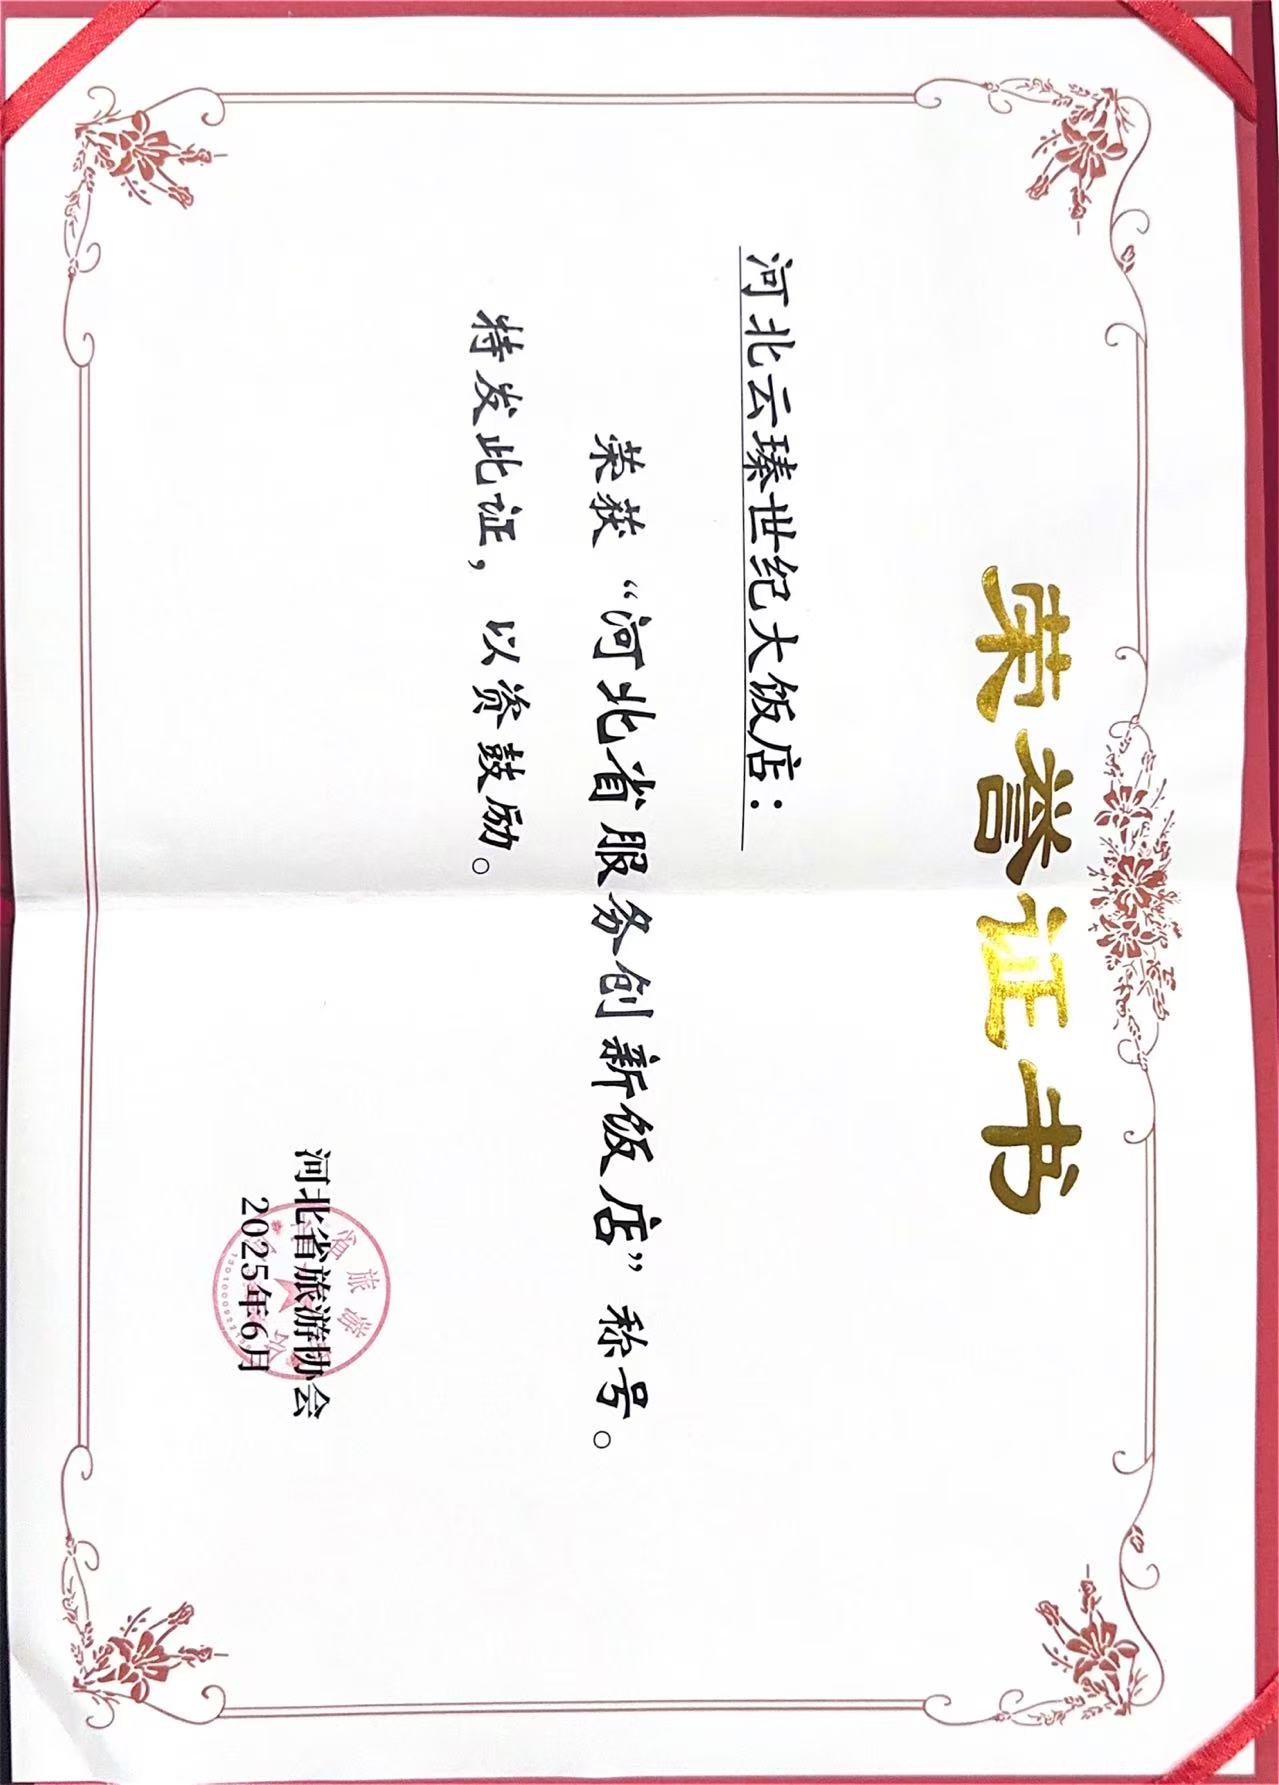 荣誉证书
河北云瑧世纪大饭店：
荣获“河北省服务创新饭店”称号。
特发此证，以资鼓励。
河北省旅游协会
2025年6月